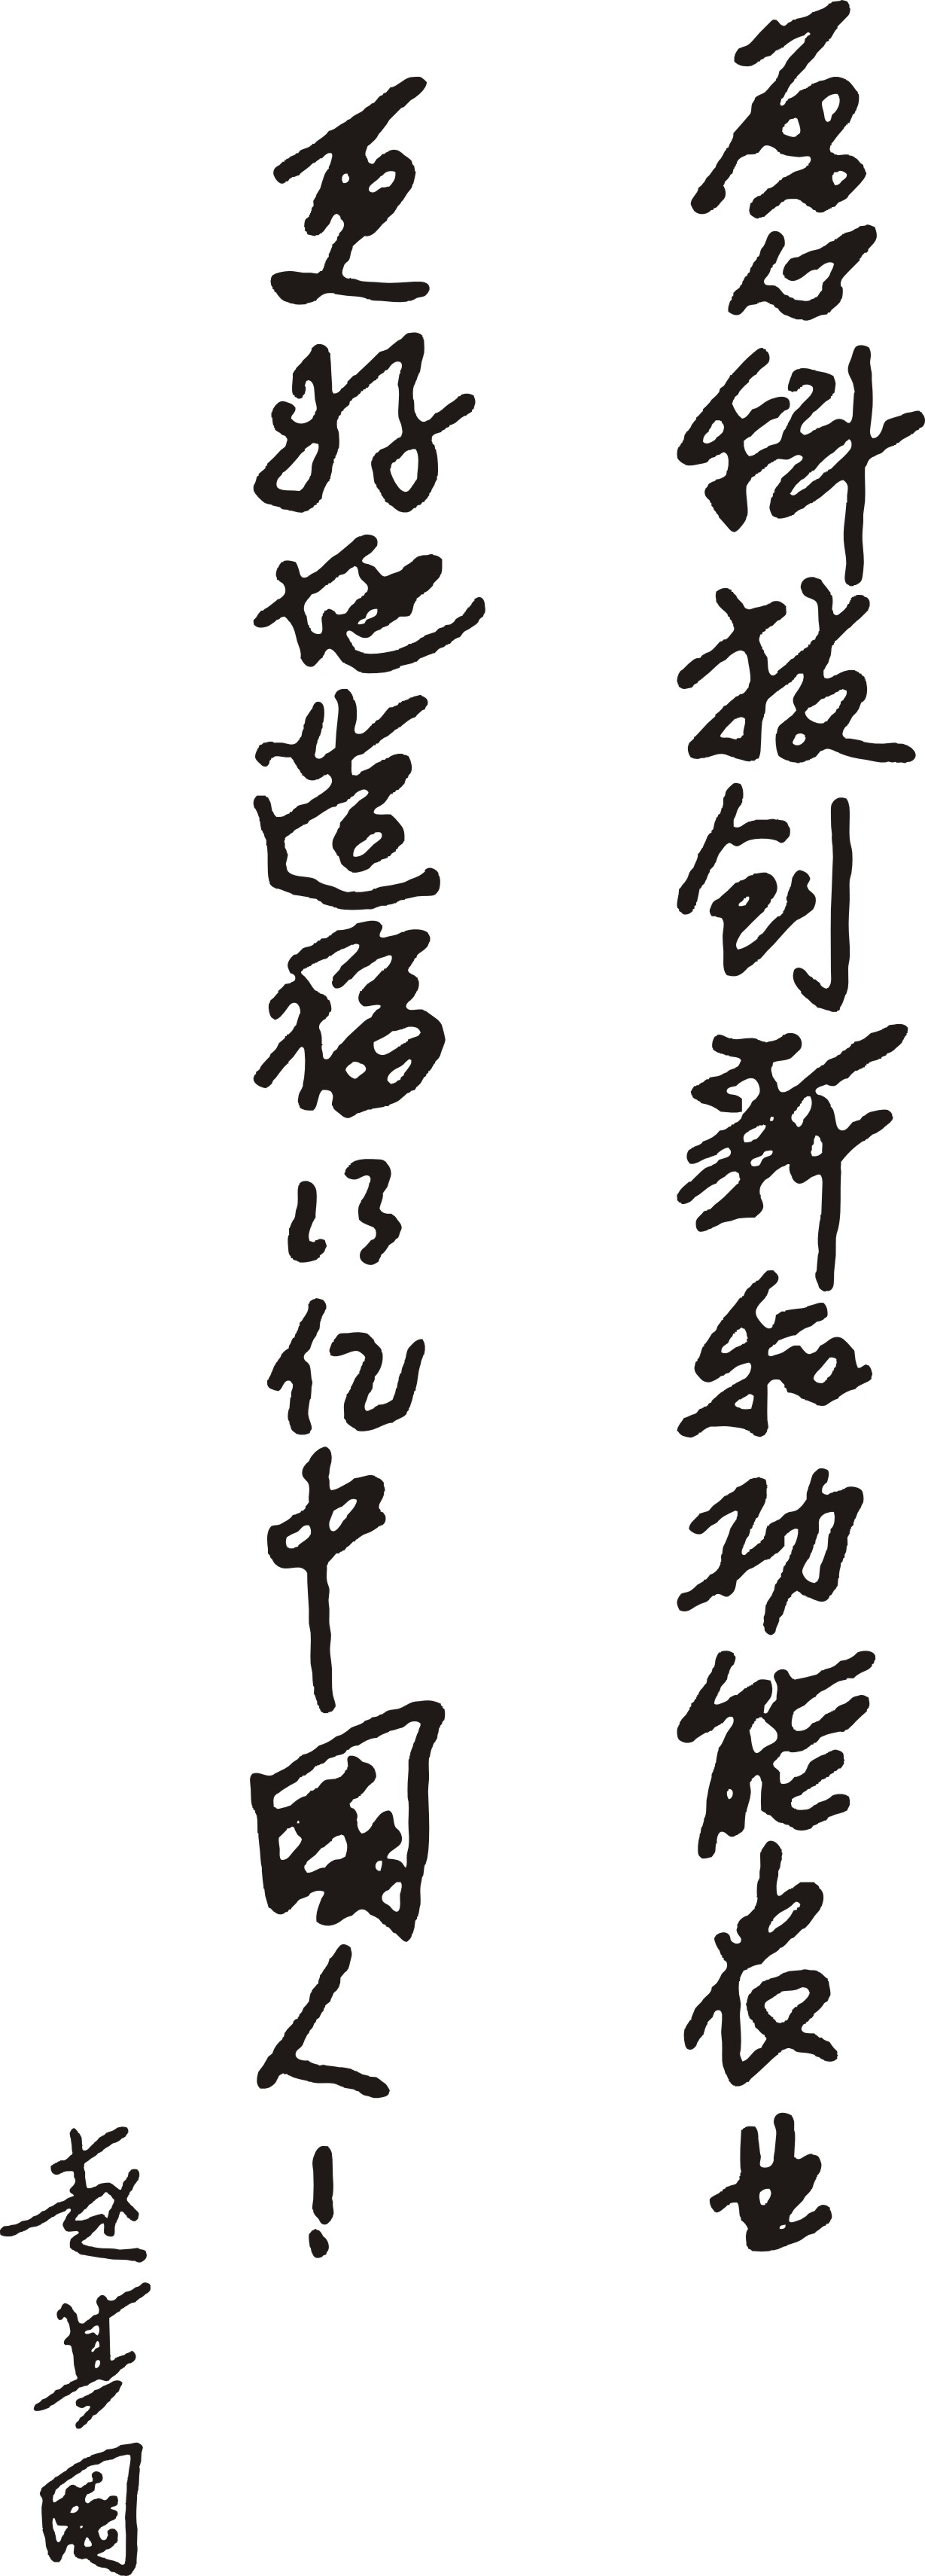 愿科技创新和功能农业
更好地造福13亿中國人！
赵其國